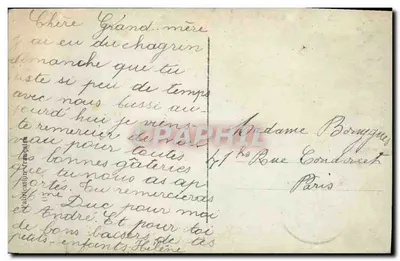 Chère Grand-mère
J'ai eu du chagrin
dimanche que tu
sois si peu de temps
avec nous aussi au
jourd'hui je viens
te remercier de nou
eau pour toutes
tes bonnes gâteries
que tu nous as ap
portés. Tu remercieras
Mme Duc pour moi
et André. Et pour toi
de bons baisers de tes
petits-enfants Hélène
Madame
Rue Condorcet
Paris